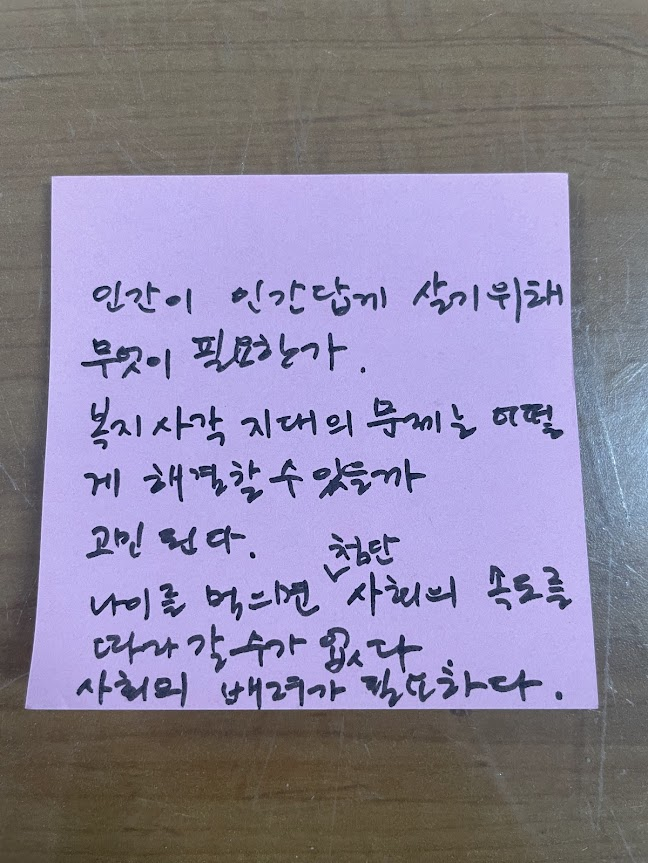 인간이 인간답게 살기위해
무엇이 필요한가.
복지 사각 지대의 문제는 어떻
게 해결할 수 있을까
고민 된다.
나이를 먹으면 첨단 사회의 속도를
따라 갈 수가 없다
사회의 배려가 필요하다.